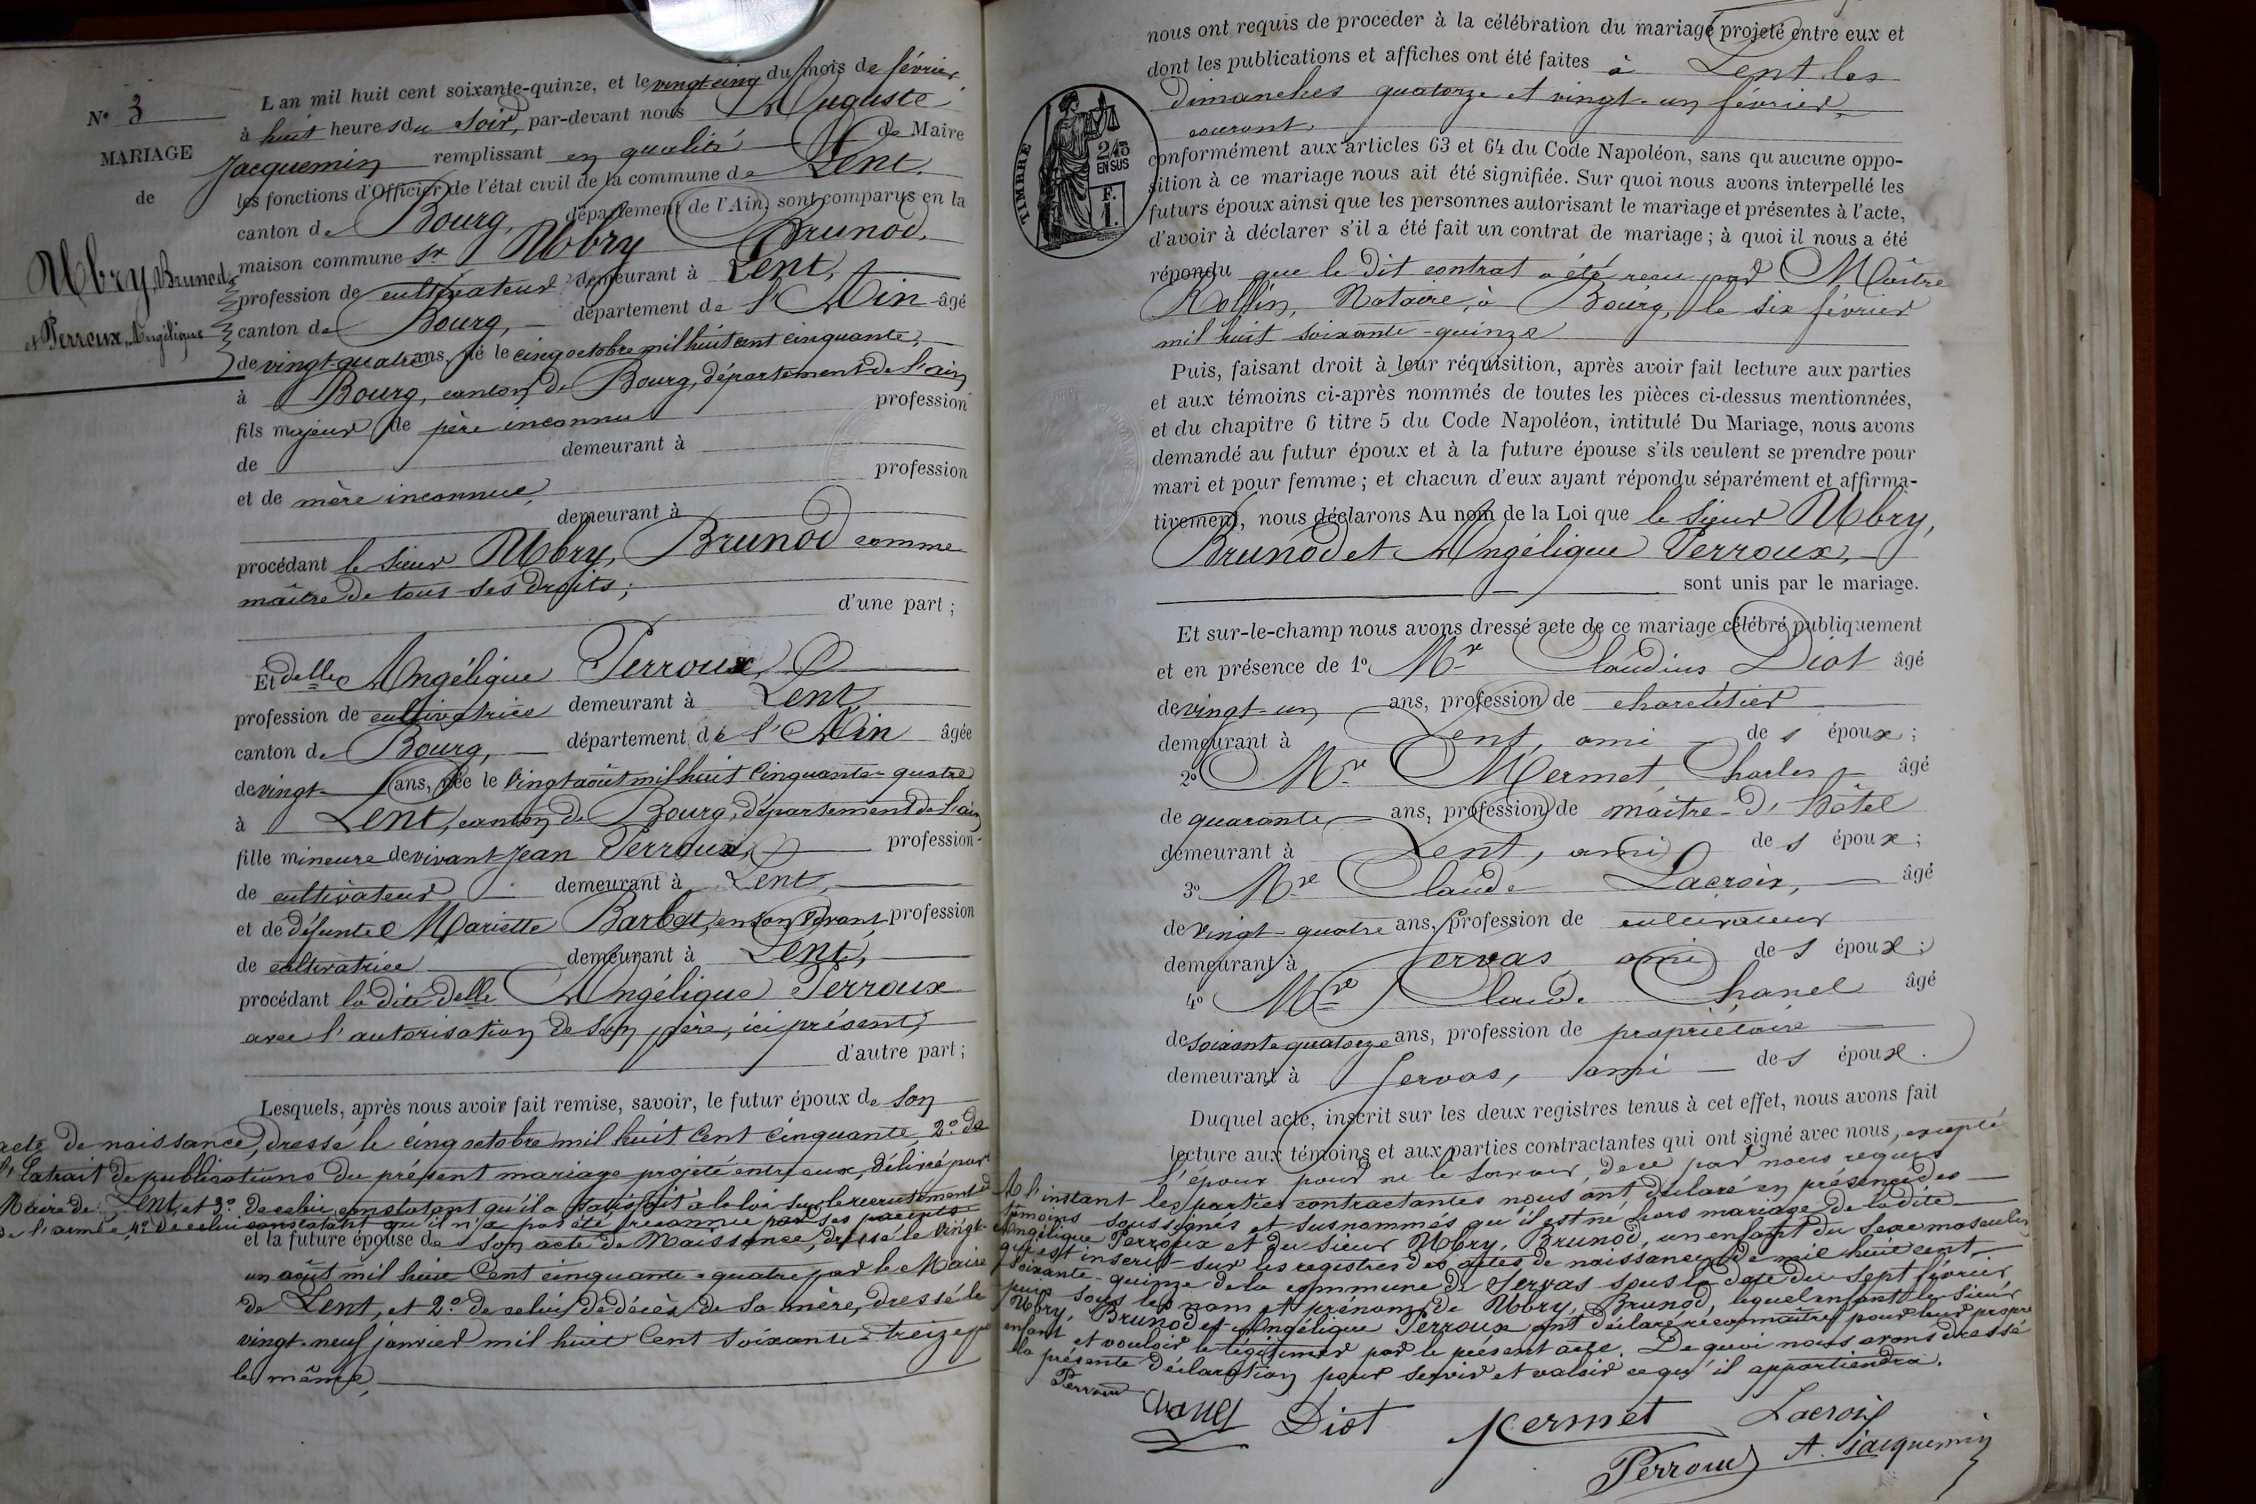 N° 3
MARIAGE
de
Ubry, Brunod
et Perroux, Angélique
L'an mil huit cent soixante-quinze, et le vingt cinq du mois de février
à huit heures du soir, par-devant nous Auguste
Jacquemin remplissant en qualité de Maire
les fonctions d'Officier de l'état civil de la commune de Lent.
canton de Bourg, département de l'Ain, sont comparus en la
maison commune sr Ubry Brunod,
profession de cultivateur demeurant à Lent,
canton de Bourg, département de l'Ain âgé
de vingt quatre ans, né le cinq octobre mil huit cent cinquante,
à Bourg, canton de Bourg, département de l'ain
fils majeur de père inconnu profession
de demeurant à
et de mère inconnue, profession
demeurant à
procédant le sieur Ubry, Brunod comme
maître de tous ses droits;
d'une part ;
Et delle Angélique Perroux,
profession de cultivatrice demeurant à Lent
canton de Bourg, département de l'Ain âgée
de vingt ans, née le vingt août mil huit cinquante-quatre
à Lent, canton de Bourg, département de l'ain
fille mineure de vivant Jean Perroux, profession
de cultivateur demeurant à Lent,
et de défunte Mariette Barbet, en son vivant, profession
de cultivatrice demeurant à Lent,
procédant la dite delle Angélique Perroux
avec l'autorisation de son père, ici présent,
d'autre part ;
Lesquels, après nous avoir fait remise, savoir, le futur époux de son
acte de naissance, dressé le cinq octobre mil huit cent cinquante, 2° de
l'Extrait de publications du présent mariage projeté entre eux, délivré par
Maire de Lent, et 3° de celui constatant qu'il a satisfait à la loi sur le recrutement
de l'armée, 4° de celui constatant qu'il n'a pas été reconnu par ses parents
et la future épouse de son acte de Naissance, dressé le vingt-
un août mil huit cent cinquante-quatre par le Maire
de Lent, et 2° de celui de décès de sa mère, dressé le
vingt-neuf janvier mil huit cent soixante-treize par
le même,
nous ont requis de procéder à la célébration du mariage projeté entre eux et
dont les publications et affiches ont été faites à Lent les
dimanches quatorze et vingt-un février,
courant,
TIMBRE
2/10 3
EN SUS
F.
1.
conformément aux articles 63 et 64 du Code Napoléon, sans qu'aucune oppo-
sition à ce mariage nous ait été signifiée. Sur quoi nous avons interpellé les
futurs époux ainsi que les personnes autorisant le mariage et présentes à l'acte,
d'avoir à déclarer s'il a été fait un contrat de mariage ; à quoi il nous a été
répondu que le dit contrat a été reçu par Maître
Rollin, Notaire, à Bourg, le six février
mil huit soixante-quinze
Puis, faisant droit à leur réquisition, après avoir fait lecture aux parties
et aux témoins ci-après nommés de toutes les pièces ci-dessus mentionnées,
et du chapitre 6 titre 5 du Code Napoléon, intitulé Du Mariage, nous avons
demandé au futur époux et à la future épouse s'ils veulent se prendre pour
mari et pour femme ; et chacun d'eux ayant répondu séparément et affirma-
tivement, nous déclarons Au nom de la Loi que le sieur Ubry,
Brunod et Angélique Perroux,
sont unis par le mariage.
Et sur-le-champ nous avons dressé acte de ce mariage célébré publiquement
et en présence de 1° Mr Claudius Diot âgé
de vingt-un ans, profession de charcutier
demeurant à Lent, ami des époux ;
2° Mr Mermet Charles âgé
de quarante ans, profession de maître-d'hôtel
demeurant à Lent, ami des époux ;
3° Mre Claude Lacroix, âgé
de vingt-quatre ans, profession de cultivateur
demeurant à Servas ami des époux ;
4° Mre Claude Chanel âgé
de soixante quatorze ans, profession de propriétaire
demeurant à Servas, ami des époux.
Duquel acte, inscrit sur les deux registres tenus à cet effet, nous avons fait
lecture aux témoins et aux parties contractantes qui ont signé avec nous, excepté
l'époux pour ne le savoir, de ce par nous requis
A l'instant les parties contractantes nous ont déclaré en présence des
témoins soussignés et susnommés qu'il est né hors mariage de la dite
Angélique Perroux et du sieur Ubry, Brunod, un enfant du sexe masculin
qui est inscrit sur les registres des actes de naissance de mil huit cent
soixante-quinze de la commune de Servas sous la date du sept février
sous les nom et prénom de Ubry, Brunod, lequel enfant le sieur
Ubry, Brunod et Angélique Perroux ont déclaré reconnaître pour leur propre
enfant et vouloir le légitimer par le présent acte. De quoi nous avons dressé
la présente déclaration pour servir et valoir ce qu'il appartiendra.
Perroux Chanel Diot Mermet Lacroix
Perroux A. Jacquemin